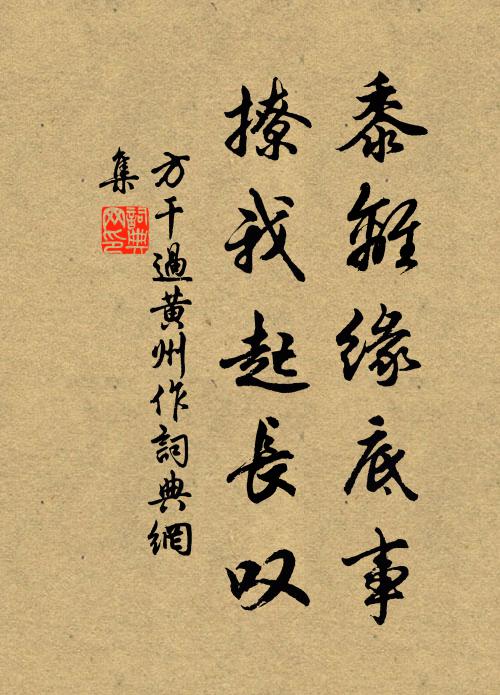 黍離緣底事
撩我起長叹
方干過黃州作詞典網
集
詞典
网印